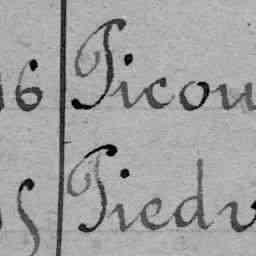 6 Picou
5 Piedv